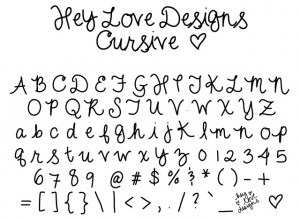 Hey Love Designs
Cursive ♡
A B C D E F G H I J K L M N
O P Q R S T U V W X Y Z
a b c d e f g h i j k l m n o p
q r s t u v w x y z 0 1 2 3 4 5
6 7 8 9 @ # $ % & * ( ) - +
= [ ] { } \ | < > , . / ? ` _
hey
love
designs